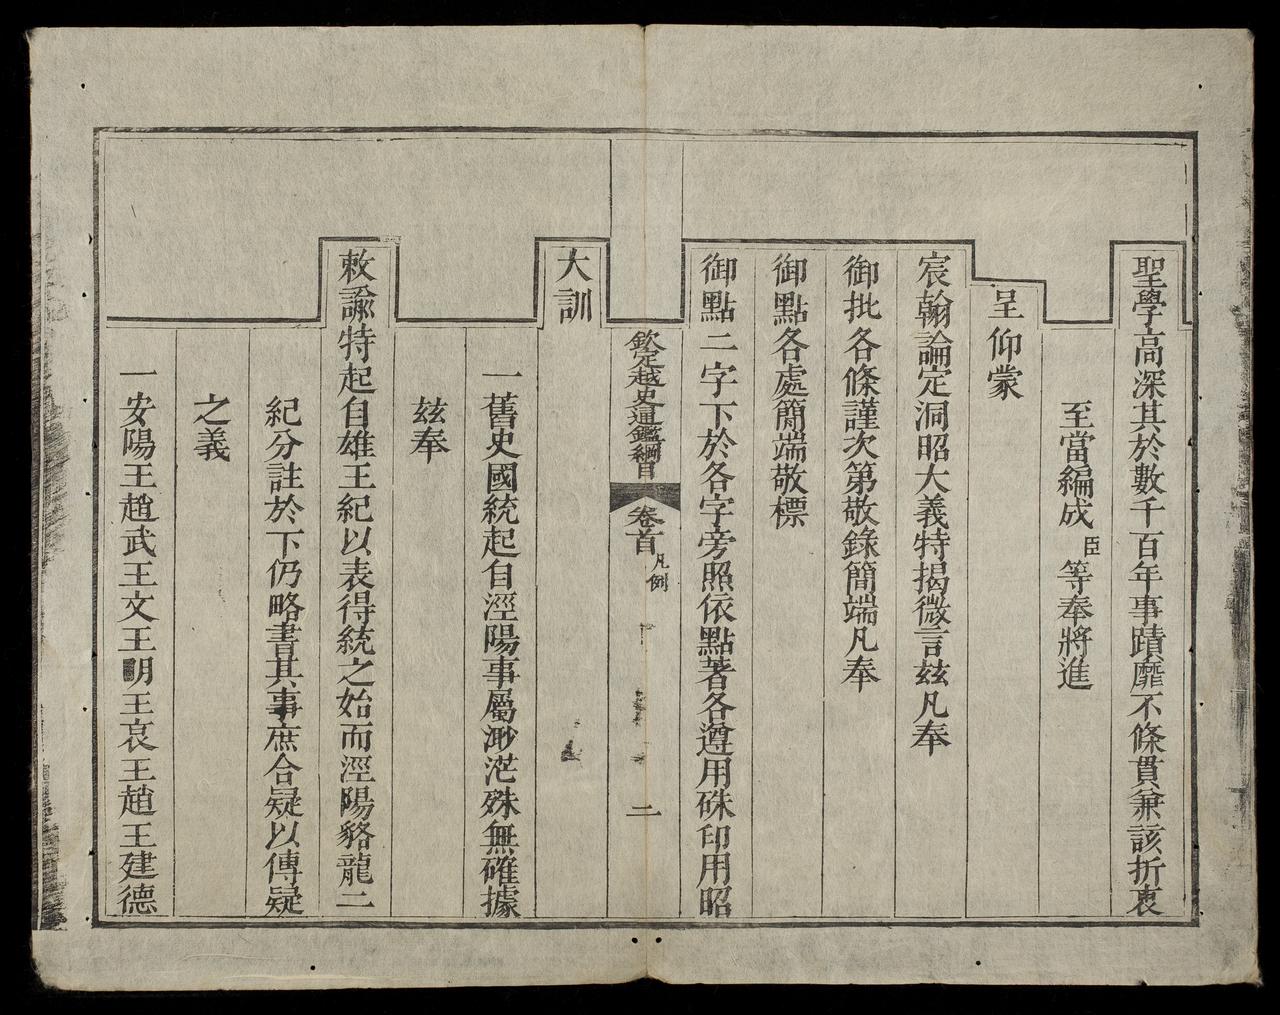 聖學高深其於數千百年事蹟靡不條貫兼該折衷
至當編成臣等奉將進
呈仰蒙
宸翰論定洞昭大義特揭微言玆凡奉
御批各條謹次第敬錄簡端凡奉
御點各處簡端敬標
御點二字下於各字旁照依點著各遵用硃印用昭
欽定越史通鑑綱目 卷首 凡例 二
大訓
一舊史國統起自涇陽事屬渺茫殊無確據
玆奉
敕諭特起自雄王紀以表得統之始而涇陽貉龍二
紀分註於下仍略書其事庶合疑以傳疑
之義
一安陽王趙武王文王明王哀王趙王建德